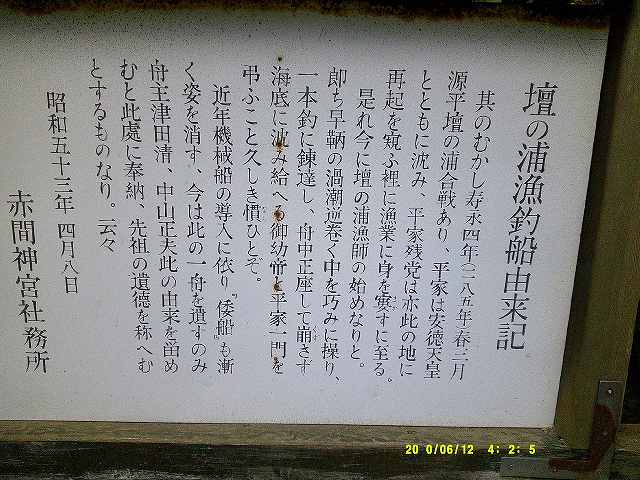 壇の浦漁釣船由来記
其のむかし寿永四年(一一八五年)春三月
源平壇の浦合戦あり、平家は安徳天皇
とともに沈み、平家残党は亦此の地に
再起を窺ふ裡に漁業に身を窶すに至る。
是れ今に壇の浦漁師の始めなりと。
即ち早鞆の渦潮逆巻く中を巧みに操り、
一本釣に錬達し、舟中正座して崩さず
海底に沈み給へる御幼帝と平家一門を
弔ふこと久しき慣ひとぞ。
近年機械船の導入に依り『倭船』も漸
く姿を消す、今は此の一舟を遺すのみ
舟主津田清、中山正夫此の由来を留め
むと此處に奉納、先祖の遺徳を称へむ
とするものなり。云々
昭和五十三年四月八日
赤間神宮社務所
20 0/06/12 4: 2: 5